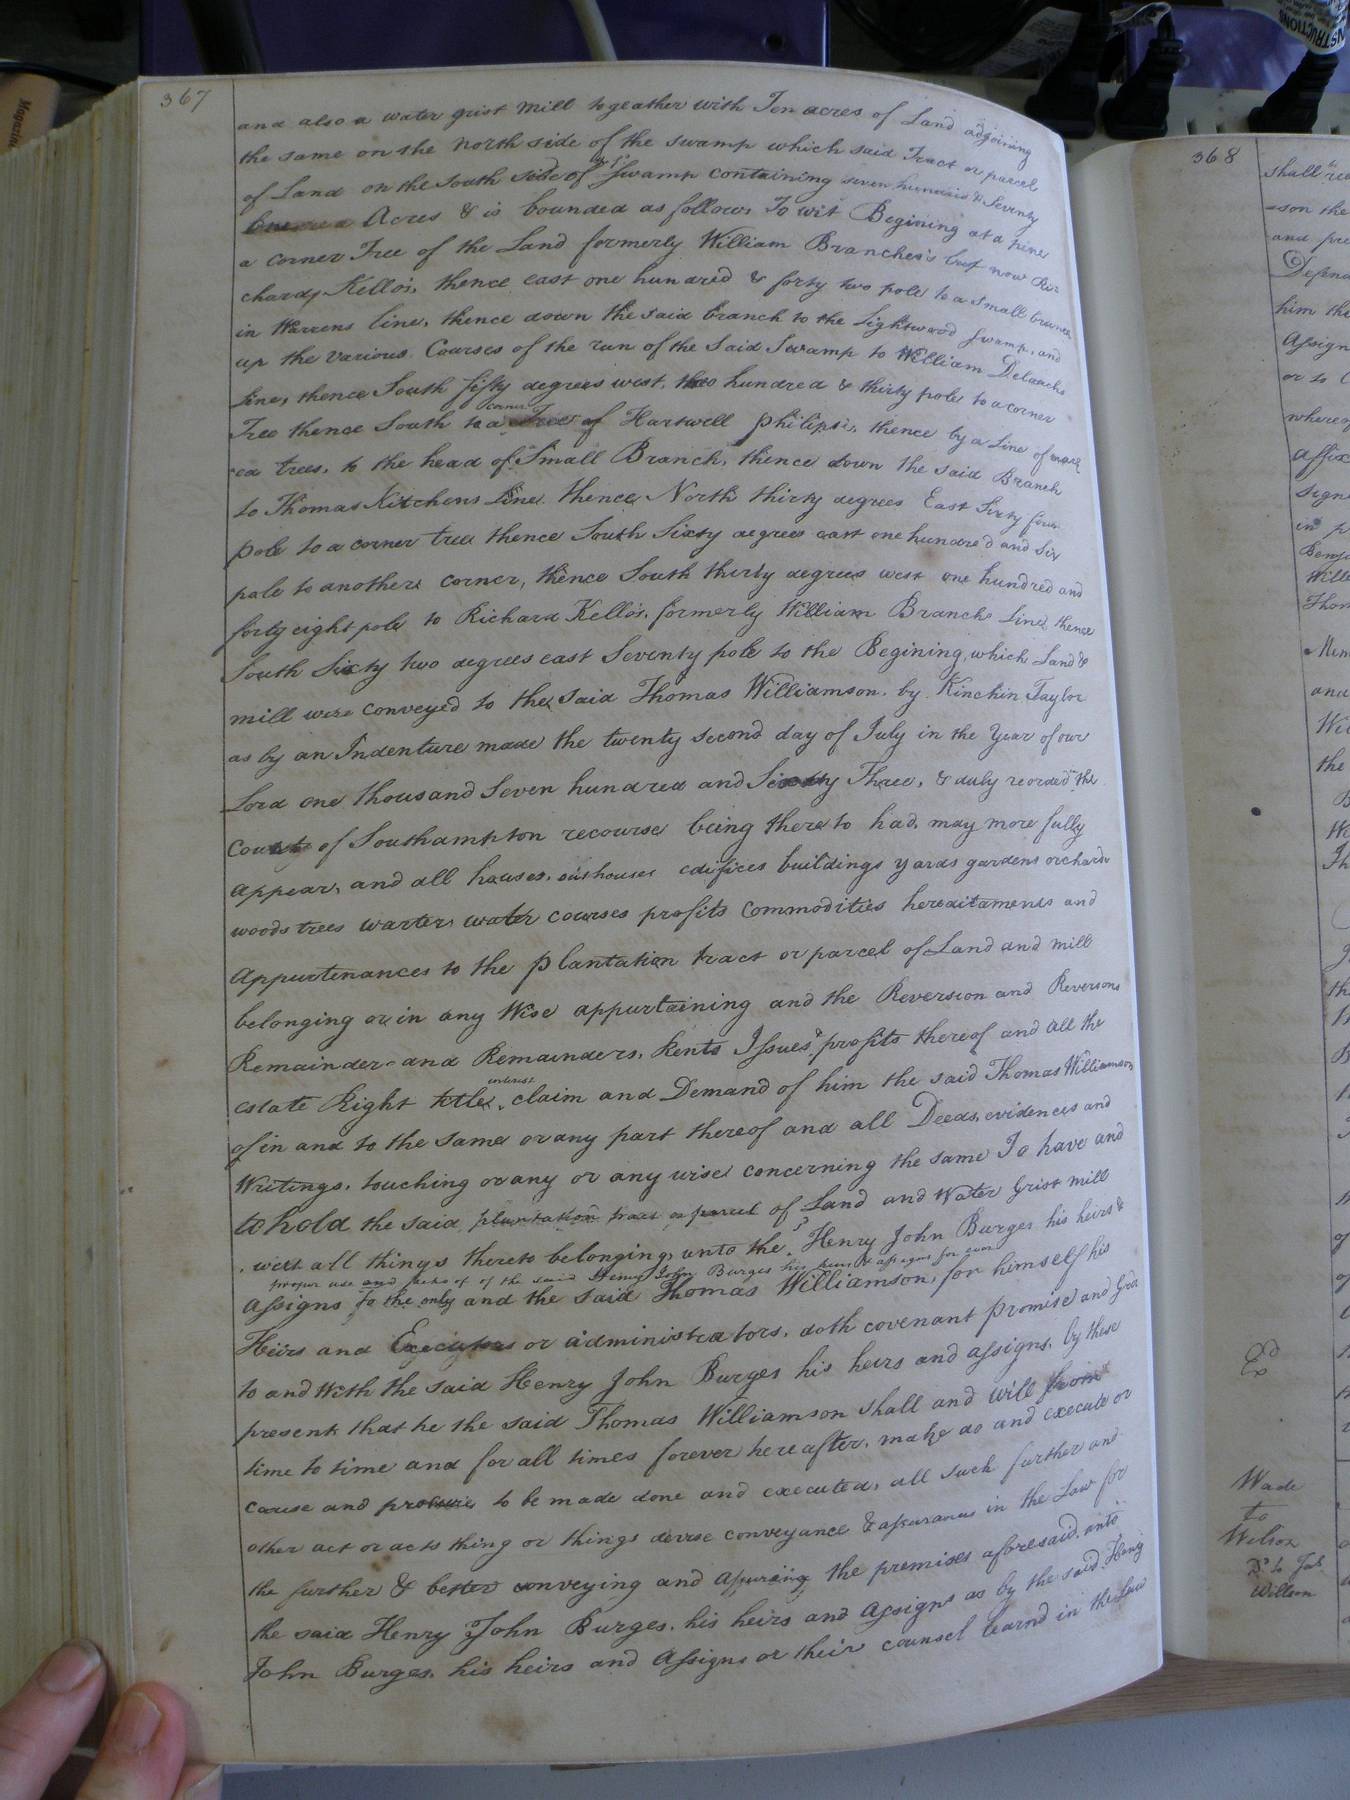 367
and also a water grist mill togeather with Ten acres of Land adjoining
the same on the north side of the swamp which said Tract or parcel
of Land on the South side of sd Swamp containing seven hundred & Seventy
Acres & is bounded as follows To wit Begining at a pine
a corner Tree of the Land formerly William Branches's but now Ri-
chards Kello's, thence east one hundred & forty two pole to a small branch
in Warrens line, thence down the said branch to the Lightwood Swamp, and
up the various Courses of the run of the Said Swamp to William Deloachs
Line, thence South fifty degrees west, two hundred & thirty pole to a corner
Tree thence South to a corner Tree of Hartwell philips's, thence by a Line of mark
ed trees, to the head of Small Branch, thence down the said Branch
to Thomas Kitchens Line thence North thirty degrees East Sixty four
pole to a corner tree thence South Sixty degrees east one hundred and six
pole to another corner, thence South thirty degrees west one hundred and
forty eight pole to Richard Kello's, formerly William Branchs Line, thence
South Sixty two degrees east Seventy pole to the Begining, which Land &
mill were conveyed to the said Thomas Williamson, by Kinchin Taylor
as by an Indenture made the twenty second day of July in the Year of our
Lord one thousand Seven hundred and Three, & duly recorded the
of Southampton recourse being thereto had, may more fully
appear, and all houses, outhouses edifices buildings yards gardens orchards
woods trees warter water courses profits commodities hereditaments and
Appurtenances to the plantation tract or parcel of Land and mill
belonging or in any Wise appurtaining and the Reversion and Reversons
Remainder and Remainders, Rents Issues & profits thereof and all the
estate Right title, interest claim and Demand of him the said Thomas Williamson
of in and to the same or any part thereof and all Deeds, evidences and
Writings, touching or any or any wise concerning the same To have and
to hold the said plantation tract or parcel of Land and Water Grist mill
, with all things thereto belonging, unto the sd Henry John Burges his heirs &
proper use and behoof of the said Henry John Burges his heirs & assigns for ever
Assigns To the only and the said Thomas Williamson, for himself his
Heirs and Executors or administrators, doth covenant promise and Gra
to and with the said Henry John Burges his heirs and assigns, by these
present that he the said Thomas Williamson shall and will from
time to time and for all times forever hereafter, make do and execute or
cause and procure to be made done and executed, all such further and
other act or acts thing or things devise conveyance & assurances in the Law for
the further & better conveying and assuring the premises aforesaid, unto
the said Henry John Burges, his heirs and Assigns as by the said Henry
John Burges, his heirs and Assigns or their counsel learnd in the Law
368
shall
son the
and pre
Depend
him the
Assign
or to
where
affix
sign
in p
Wille
Thom
Mem
and
Wil
the
Wade
to
Wilson
Do to Jas
Willson